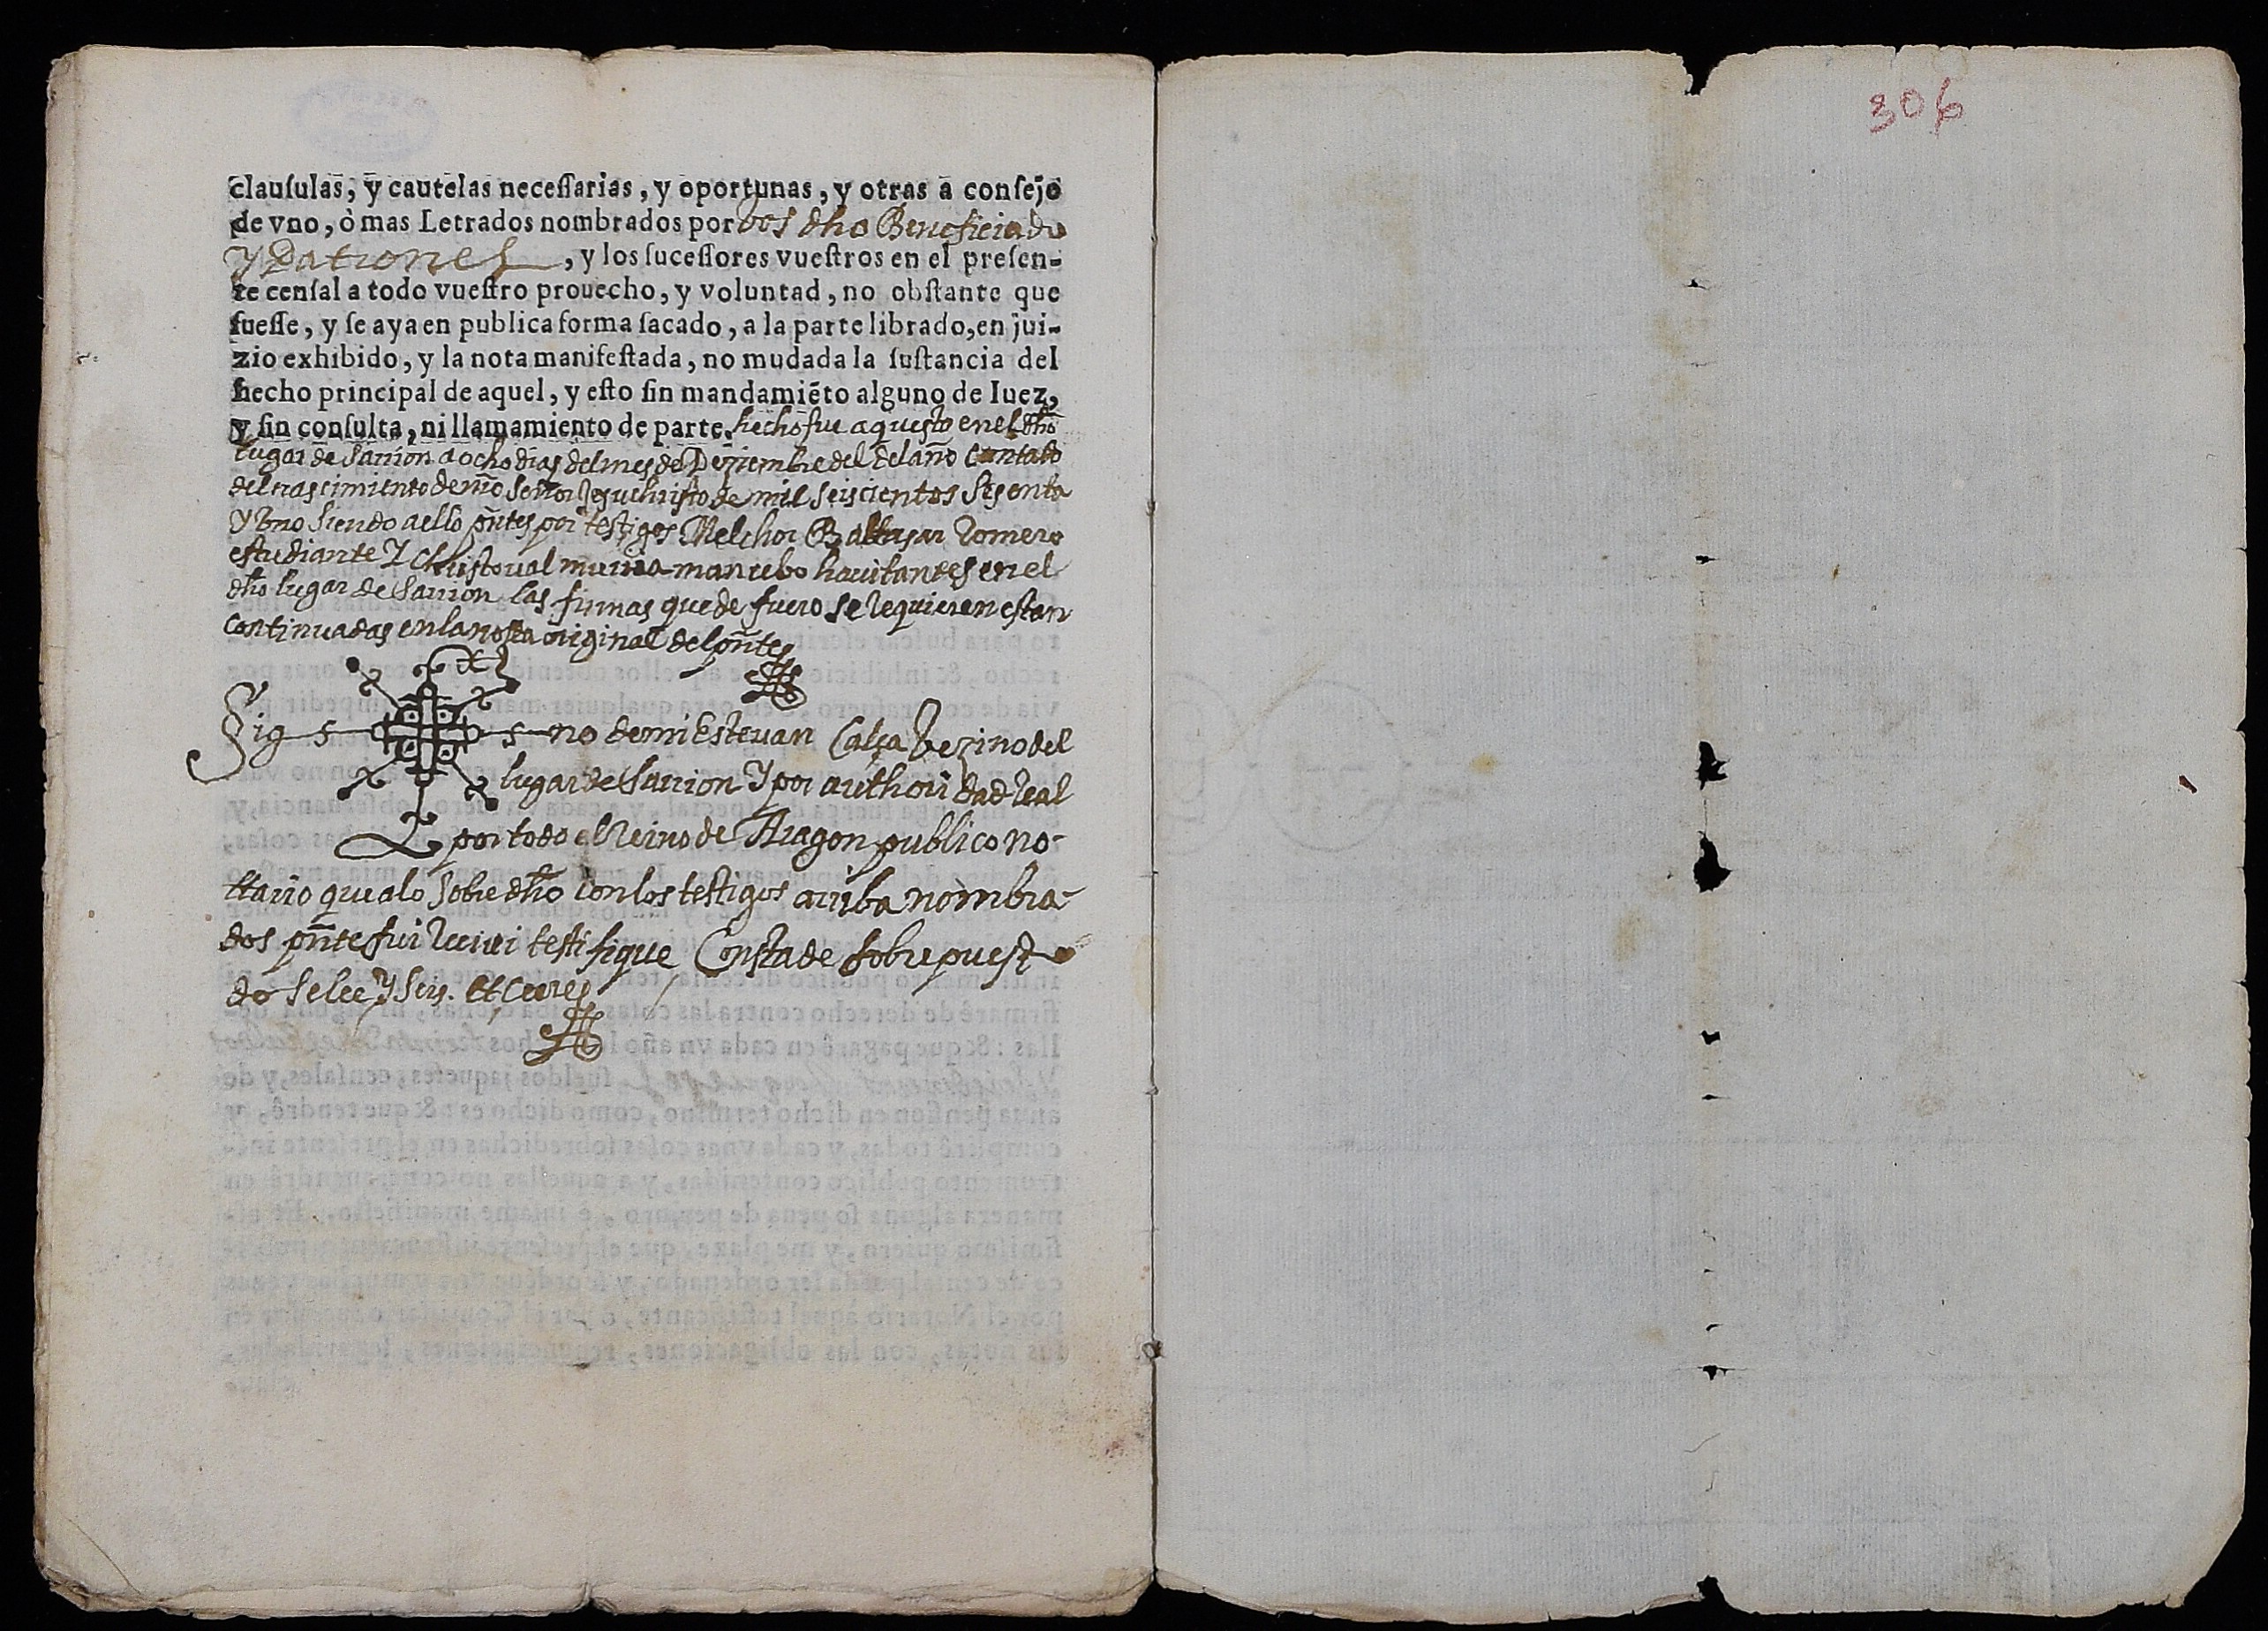 clauſulas, y cautelas neceſſarias, y oportunas, y otras à conſejo
de vno, ò mas Letrados nombrados por vos dho Beneficiado
y Patrones, y los ſuceſſores vueſtros en el preſen-
te cenſal a todo vueſtro prouecho, y voluntad, no obſtante que
fueſſe, y ſe aya en publica forma ſacado, a la parte librado, en jui-
zio exhibido, y la nota manifeſtada, no mudada la ſuſtancia del
hecho principal de aquel, y eſto ſin mandamiẽto alguno de Iuez,
y ſin conſulta, ni llamamiento de parte. hecho fue aquesto en el dho
lugar de Sarrion a ocho dias del mes de Deziembre del del año contado
del nascimiento de nro Señor Jesuchristo de mil seiscientos sesenta
y Uno siendo a ello pntes por testigos Melchor Baltasar Romero
estudiante Y Christoual mancebo hauitantes en el
dho lugar de Sarrion las firmas que de fuero se requieren estan
continuadas en la nota original del pnte
Sig no de mi Esteuan Calça Vezino del
lugar de Sarrion Y por authoridad Real
por todo el Reino de Aragon publico no-
ttario que a lo sobredho con los testigos arriba nombra-
dos pnte fui testifique Consta de sobrepuesto
do Selee Y Seis. et
306